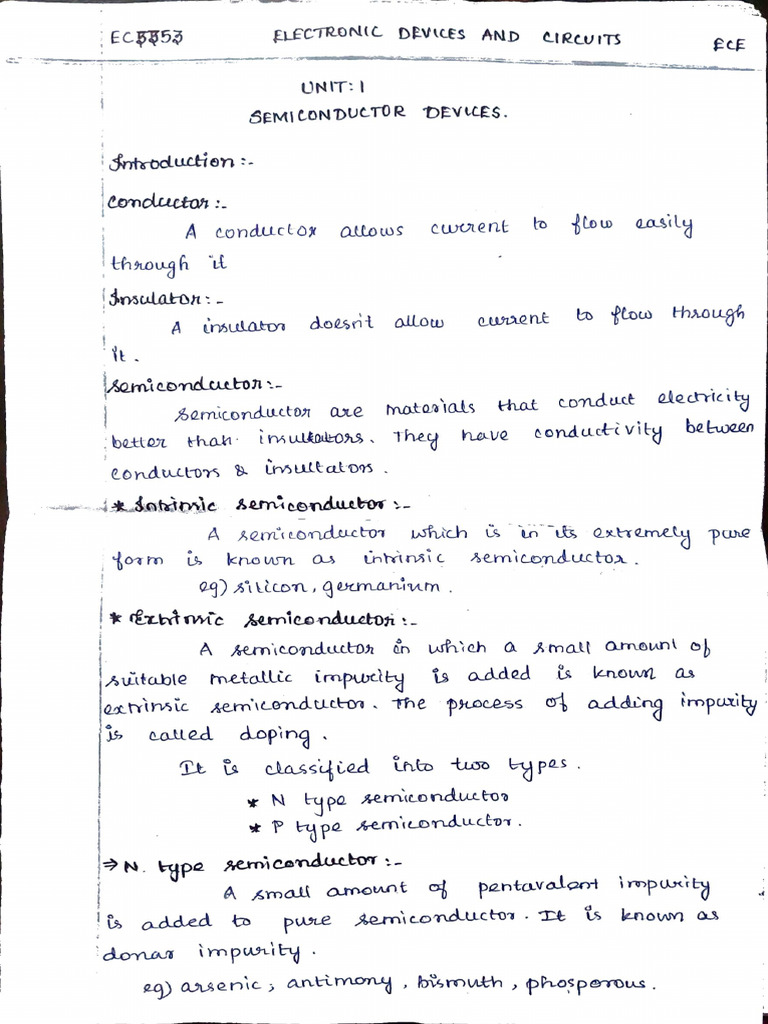 EC3353 ELECTRONIC DEVICES AND CIRCUITS ECE
UNIT: 1
SEMICONDUCTOR DEVICES.
Introduction:-
conductor:-
A conductor allows current to flow easily
through it
Insulator:-
A insulator doesn't allow current to flow through
it.
semiconductor:-
semiconductor are materials that conduct electricity
better than insultators. They have conductivity between
conductors & insultators.
* Intrinsic semiconductor:-
A semiconductor which is in its extremely pure
form is known as intrinsic semiconductor.
eg) silicon, germanium.
* Extrinsic semiconductor:-
A semiconductor in which a small amount of
suitable metallic impurity is added is known as
extrinsic semiconductor. The process of adding impurity
is called doping.
It is classified into two types.
* N type semiconductor
* P type semiconductor.
⇒ N. type semiconductor:-
A small amount of pentavalent impurity
is added to pure semiconductor. It is known as
donar impurity.
eg) arsenic, antimony, bismuth, phosporous.